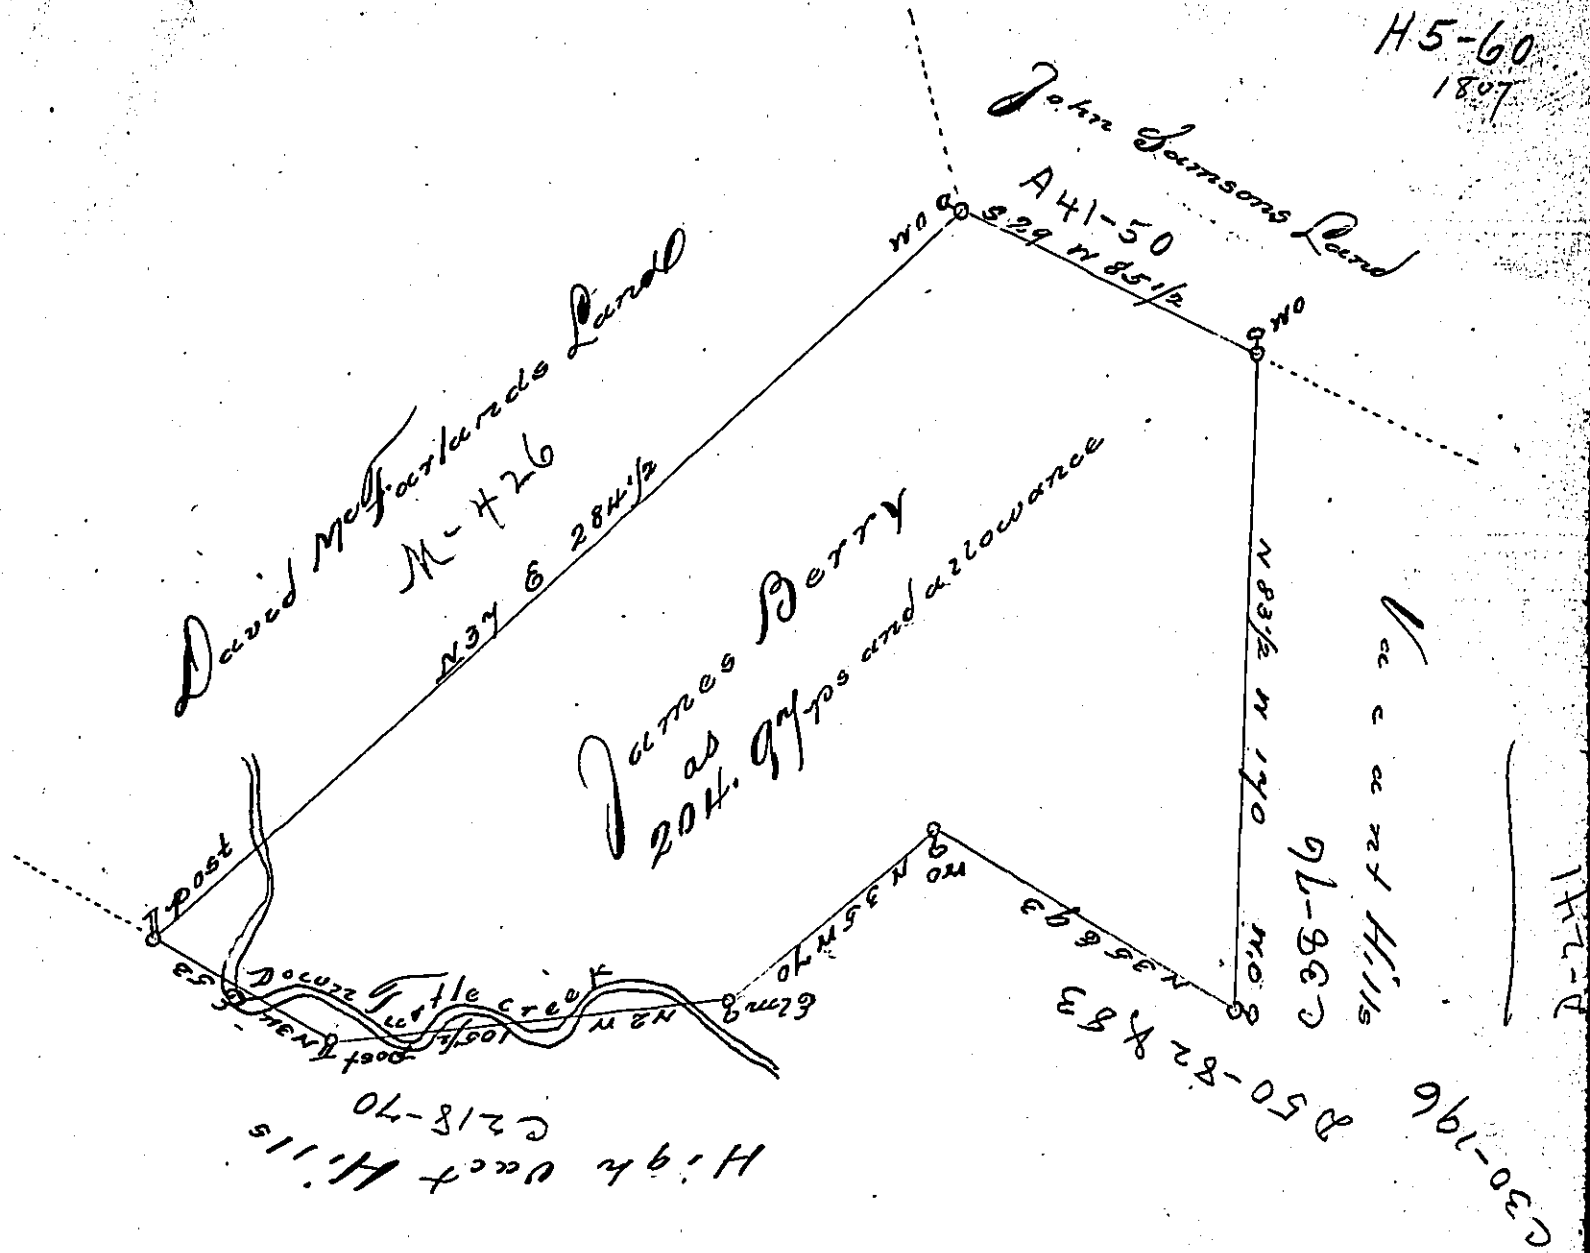 H5-60
1807
John Samsons Land
A41-50
S 29 W 85 1/2
WO
WO
David McFarlands Land
M-426
N 37 E 284 1/2
James Berry
as
204. 97 ps and allowance
N 83 1/2 W 170
W.O
Vacant Hills
C38-76
A-241
post
WO
N 35 W 70
N 35 E 93
Elm
N 2 W 105 1/2
Turtle Creek
post
N 34 E 53
C218-70
High Vact Hills
D50-82 & 83
C30-196